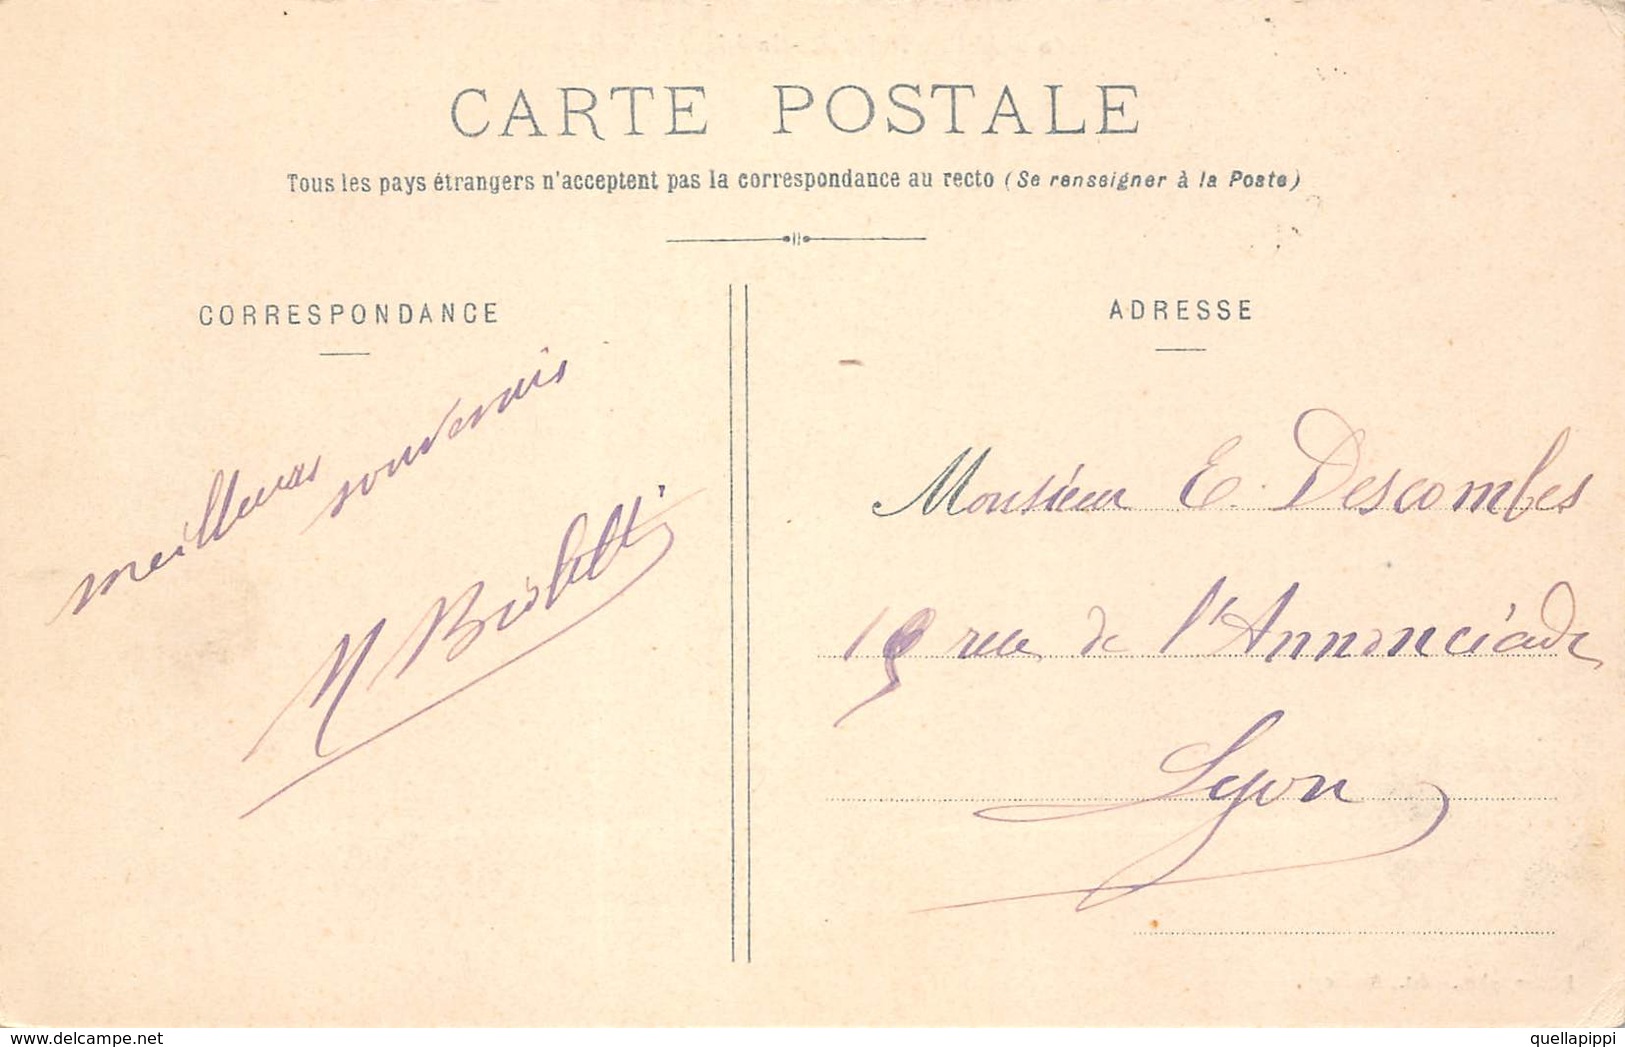 CARTE POSTALE
Tous les pays étrangers n'acceptent pas la correspondance au recto (Se renseigner à la Poste)
CORRESPONDANCE
meilleurs
souvenirs
M
ADRESSE
Monsieur E. Descombes
19 rue de l'Annonciade
Lyon
www.delcampe.net
quellapippi